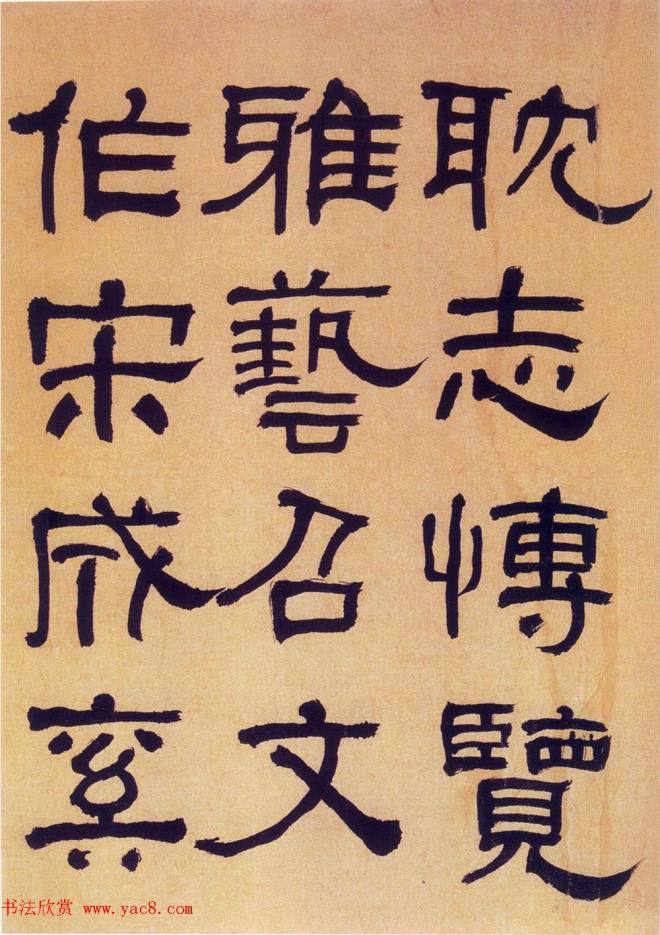 耽志愽覽
雅藝召文
作宋成
书法欣赏 www.yac8.com